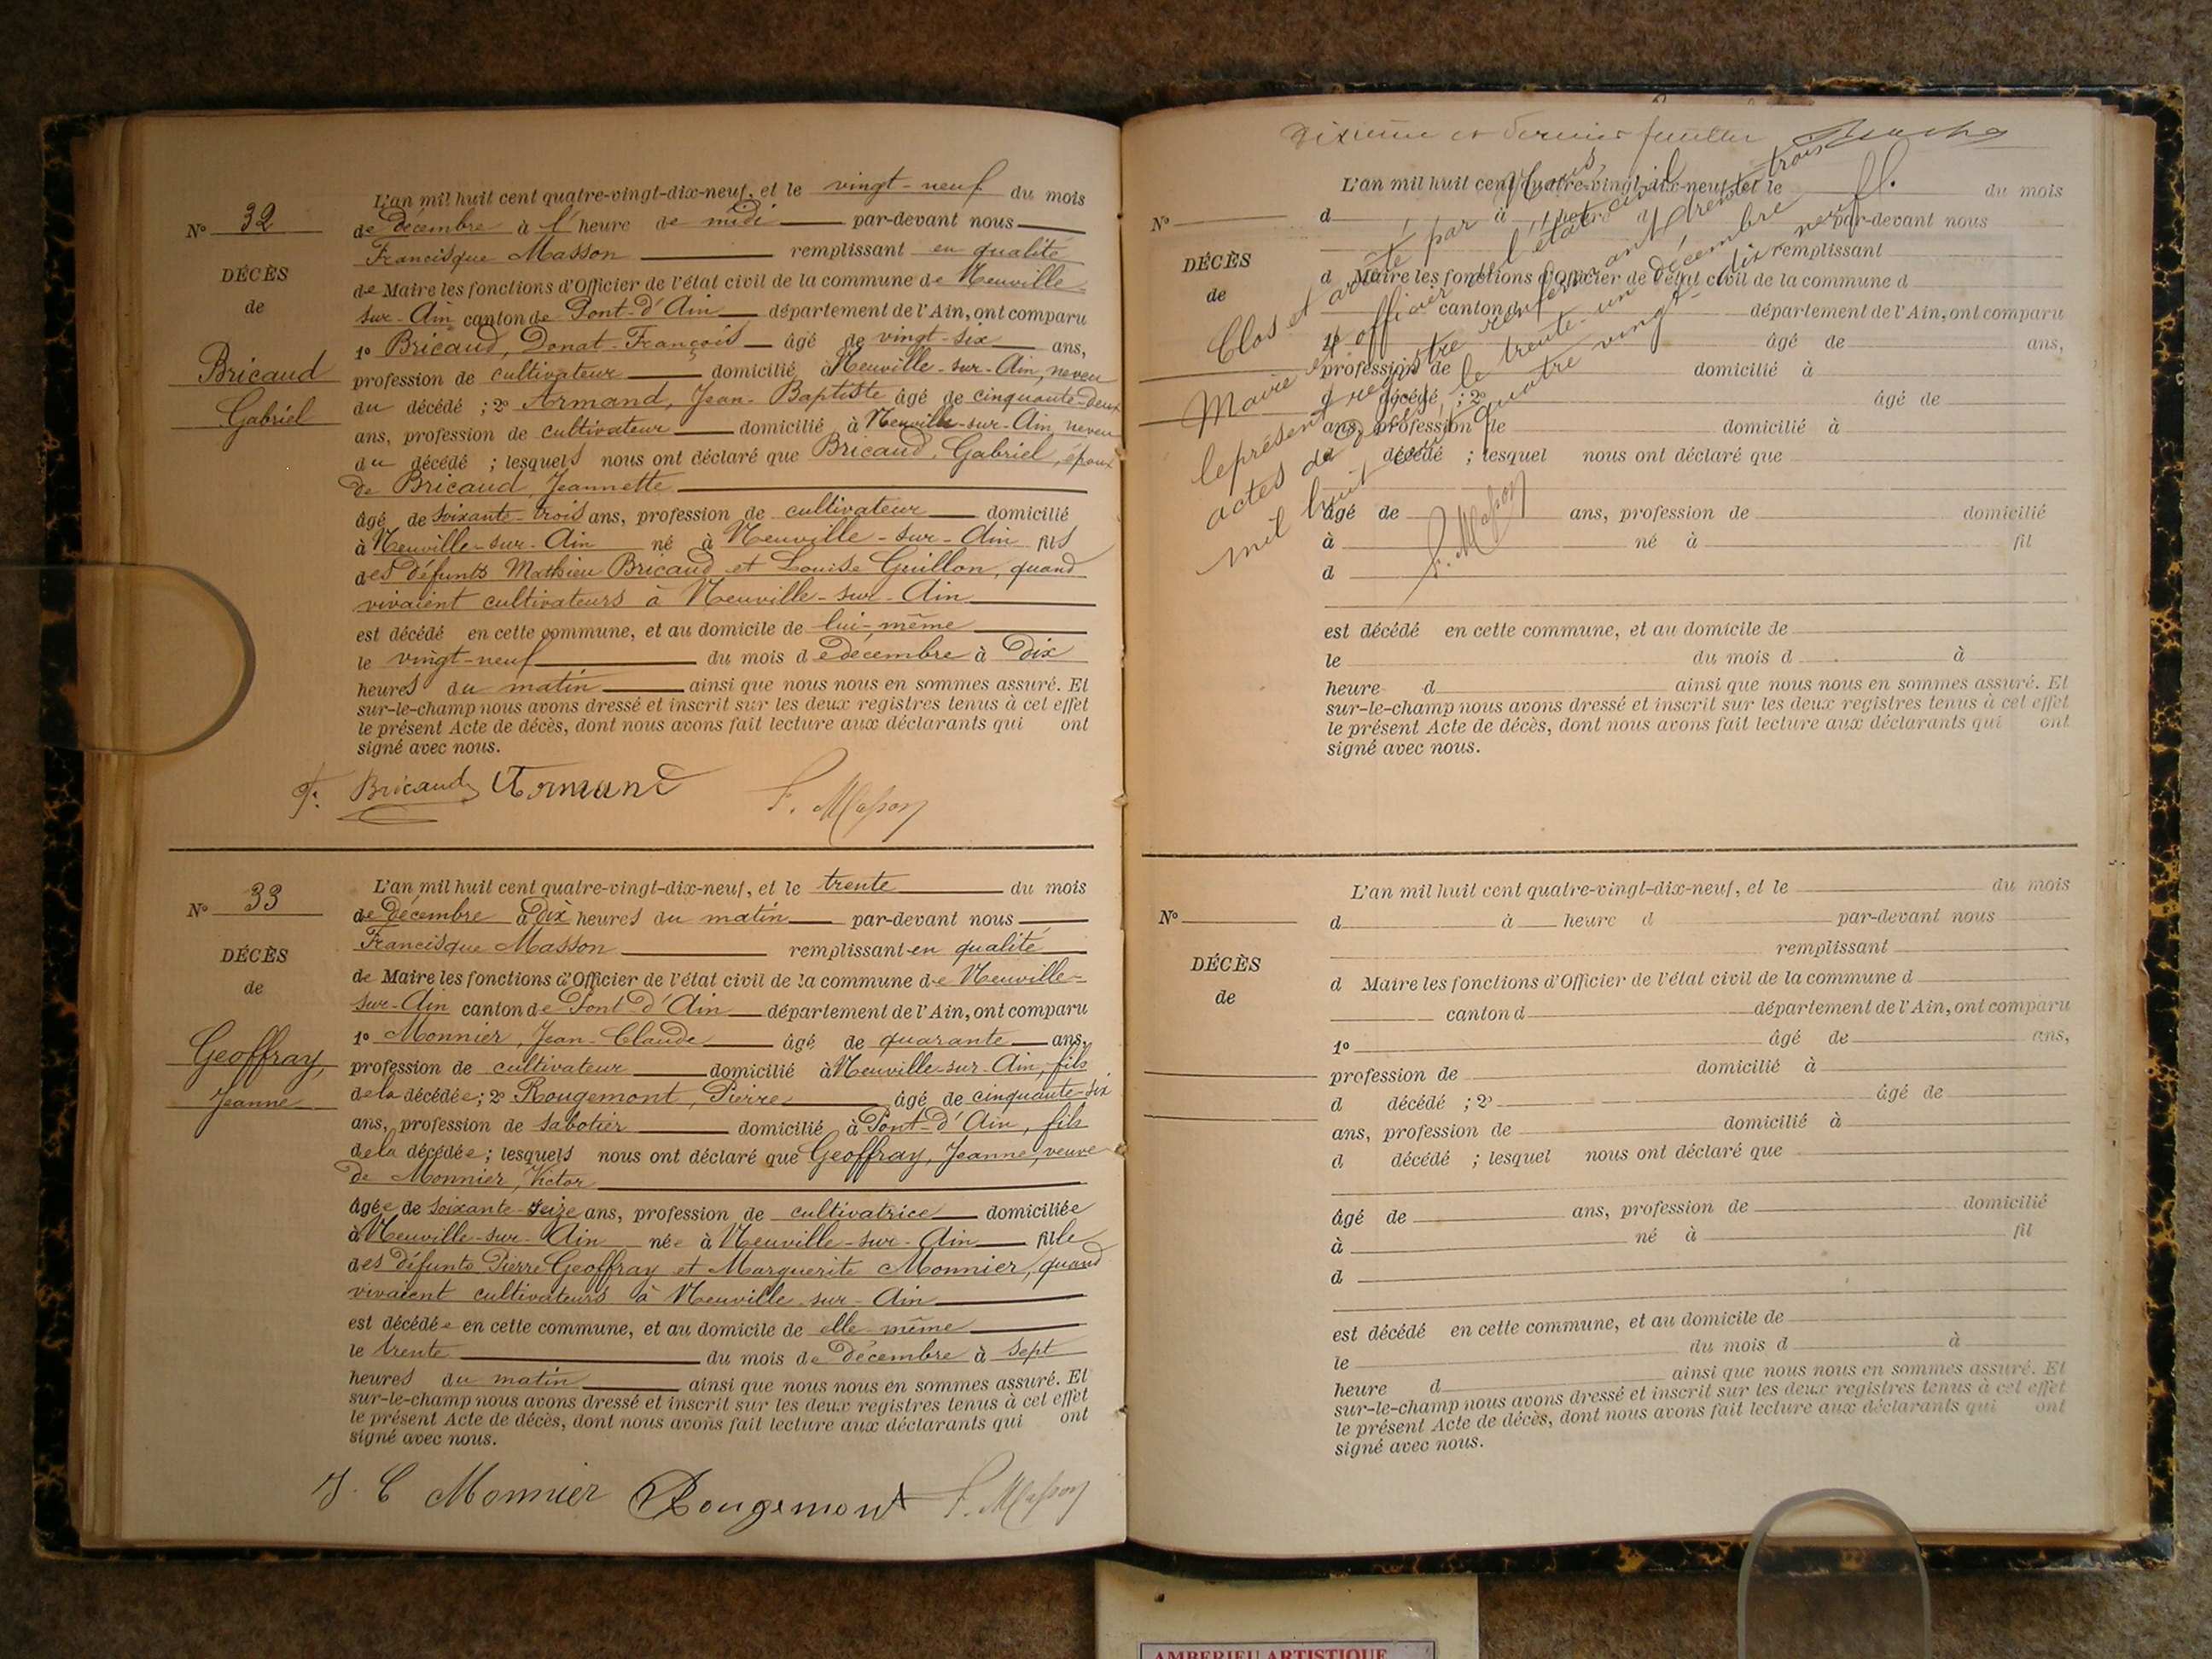 L'an mil huit cent quatre-vingt-dix-neuf, et le vingt-neuf du mois
N° 32
de Décembre à l'heure de midi par-devant nous
Francisque Masson remplissant en qualité
DÉCÈS
de Maire les fonctions d'Officier de l'état civil de la commune de Neuville-
de
sur-Ain canton de Pont-d'Ain département de l'Ain, ont comparu
1° Bricaud, Donat-François âgé de vingt-six ans,
Bricaud
profession de cultivateur domicilié à Neuville-sur-Ain, neveu
Gabriel
du décédé ; 2° Armand, Jean-Baptiste âgé de cinquante-deux
ans, profession de cultivateur domicilié à Neuville-sur-Ain, neveu
du décédé ; lesquels nous ont déclaré que Bricaud, Gabriel, époux
de Bricaud, Jeannette
âgé de soixante-trois ans, profession de cultivateur domicilié
à Neuville-sur-Ain né à Neuville-sur-Ain fils
des défunts Mathieu Bricaud et Louise Guillon, quand
vivaient cultivateurs à Neuville-sur-Ain
est décédé en cette commune, et au domicile de lui-même
le vingt-neuf du mois de décembre à Dix
heures du matin ainsi que nous nous en sommes assuré. Et
sur-le-champ nous avons dressé et inscrit sur les deux registres tenus à cet effet
le présent Acte de décès, dont nous avons fait lecture aux déclarants qui ont
signé avec nous.
F. Bricaud Armand F. Masson
L'an mil huit cent quatre-vingt-dix-neuf, et le trente du mois
N° 33
de Décembre à Dix heures du matin par-devant nous
Francisque Masson remplissant en qualité
DÉCÈS
de Maire les fonctions d'Officier de l'état civil de la commune de Neuville-
de
sur-Ain canton de Pont d'Ain département de l'Ain, ont comparu
1° Monnier, Jean-Claude âgé de quarante ans,
Geoffray,
profession de cultivateur domicilié à Neuville-sur-Ain, fils
Jeanne
de la décédée ; 2° Rougemont, Pierre âgé de cinquante-six
ans, profession de sabotier domicilié à Pont-d'Ain, fils
de la décédée ; lesquels nous ont déclaré que Geoffray, Jeanne, veuve
de Monnier, Victor
âgée de soixante-seize ans, profession de cultivatrice domiciliée
à Neuville-sur-Ain née à Neuville-sur-Ain fille
des défunts Pierre Geoffray et Marguerite Monnier, quand
vivaient cultivateurs à Neuville-sur-Ain
est décédée en cette commune, et au domicile de elle même
le trente du mois de Décembre à sept
heures du matin ainsi que nous nous en sommes assuré. Et
sur-le-champ nous avons dressé et inscrit sur les deux registres tenus à cet effet
le présent Acte de décès, dont nous avons fait lecture aux déclarants qui ont
signé avec nous.
J. C Monnier Rougemont F. Masson
Dixième et dernier feuillet
Clos et arrêté par Nous,
Maire et officier de l'état civil
le présent registre renfermant trente trois
actes de décès, le trente-un décembre
mil huit cent quatre vingt-dix neuf.
F. Masson
L'an mil huit cent quatre-vingt-dix-neuf, et le du mois
N°
d à heure d par-devant nous
remplissant
DÉCÈS
d Maire les fonctions d'Officier de l'état civil de la commune d
de
canton d département de l'Ain, ont comparu
1° âgé de ans,
profession de domicilié à
d décédé ; 2° âgé de
ans, profession de domicilié à
d décédé ; lesquel nous ont déclaré que
âgé de ans, profession de domicilié
à né à fil
d
est décédé en cette commune, et au domicile de
le du mois d à
heure d ainsi que nous nous en sommes assuré. Et
sur-le-champ nous avons dressé et inscrit sur les deux registres tenus à cet effet
le présent Acte de décès, dont nous avons fait lecture aux déclarants qui ont
signé avec nous.
L'an mil huit cent quatre-vingt-dix-neuf, et le du mois
N°
d à heure d par-devant nous
remplissant
DÉCÈS
d Maire les fonctions d'Officier de l'état civil de la commune d
de
canton d département de l'Ain, ont comparu
1° âgé de ans,
profession de domicilié à
d décédé ; 2° âgé de
ans, profession de domicilié à
d décédé ; lesquel nous ont déclaré que
âgé de ans, profession de domicilié
à né à fil
d
est décédé en cette commune, et au domicile de
le du mois d à
heure d ainsi que nous nous en sommes assuré. Et
sur-le-champ nous avons dressé et inscrit sur les deux registres tenus à cet effet
le présent Acte de décès, dont nous avons fait lecture aux déclarants qui ont
signé avec nous.
AMBERIEU ARTISTIQUE